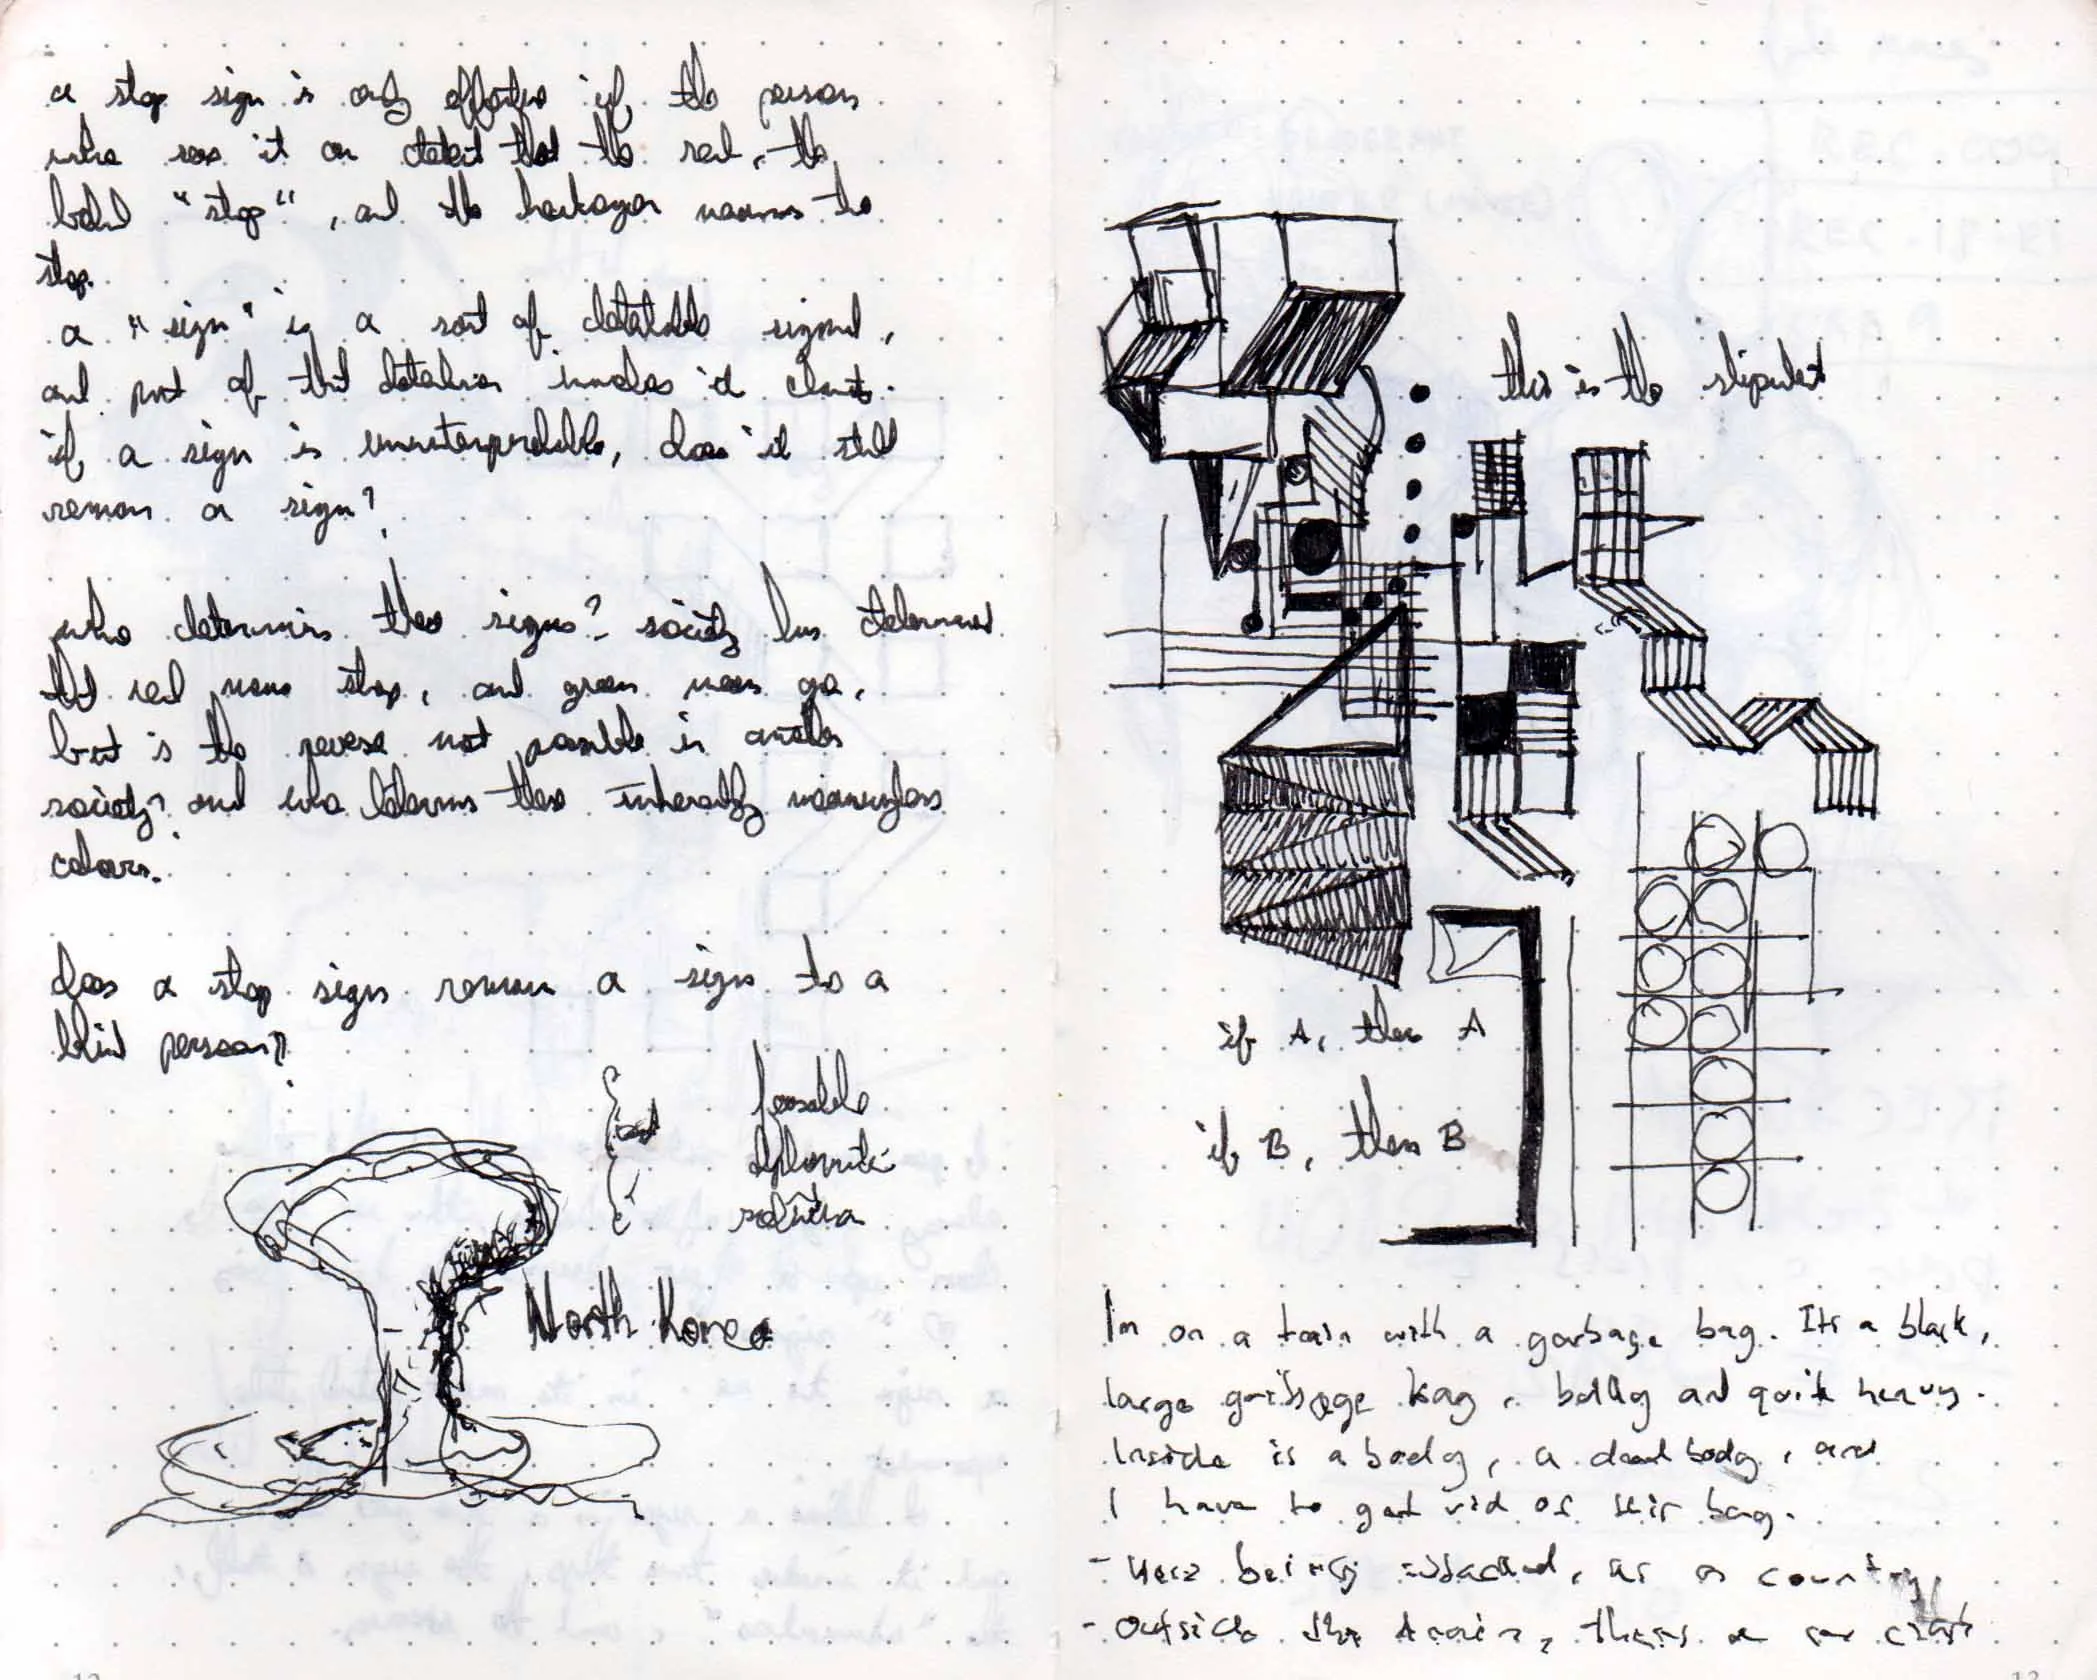 a stop sign is only effective if the person
who sees it can detect that the red, the
label "stop", and the hexagon means the
stop.
a "sign" is a sort of detectable signal,
and part of that detection involves it
if a sign is uninterpretable, does it still
remain a sign?
who determines these signs? society has determined
that red means stop, and green means go,
but is the reverse not possible in another
society? and who determines these inherently meaningless
colours.
does a stop sign remain a sign to a
blind person?
feasable
diplomatic
solution
North Korea
this is the
if A, then A
if B, then B
Im on a train with a garbage bag. Its a black,
large garbage bag, bulky and quite heavy.
Inside is a body, a dead body, and
I have to get rid of this bag.
- were being attacked, as a country,
- outside the train, theres a car crash
12
13